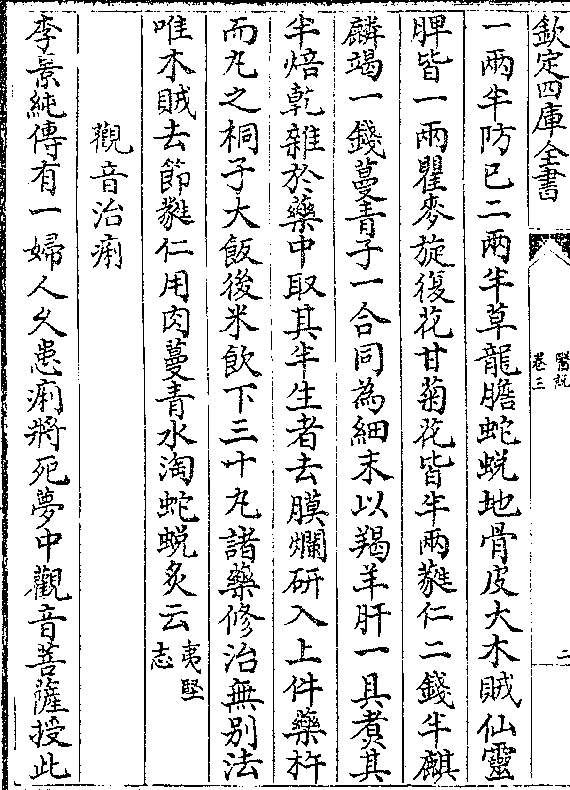 欽定四庫全書
醫説
卷三
二
一兩半防已二兩半草龍膽蛇蜕地骨皮大木賊仙靈
脾皆一兩瞿麥旋復花甘菊花皆半兩蕤仁二錢半麒
麟竭一錢蔓青子一合同為細末以羯羊肝一具煑其
半焙乾雜於藥中取其半生者去膜爛研入上件藥杵
而丸之桐子大飯後米飲下三十丸諸藥修治無别法
唯木賊去節蕤仁用肉蔓青水淘蛇蜕炙云夷堅志
觀音治痢
李景純傳有一婦人久患痢將死夢中觀音菩薩授此